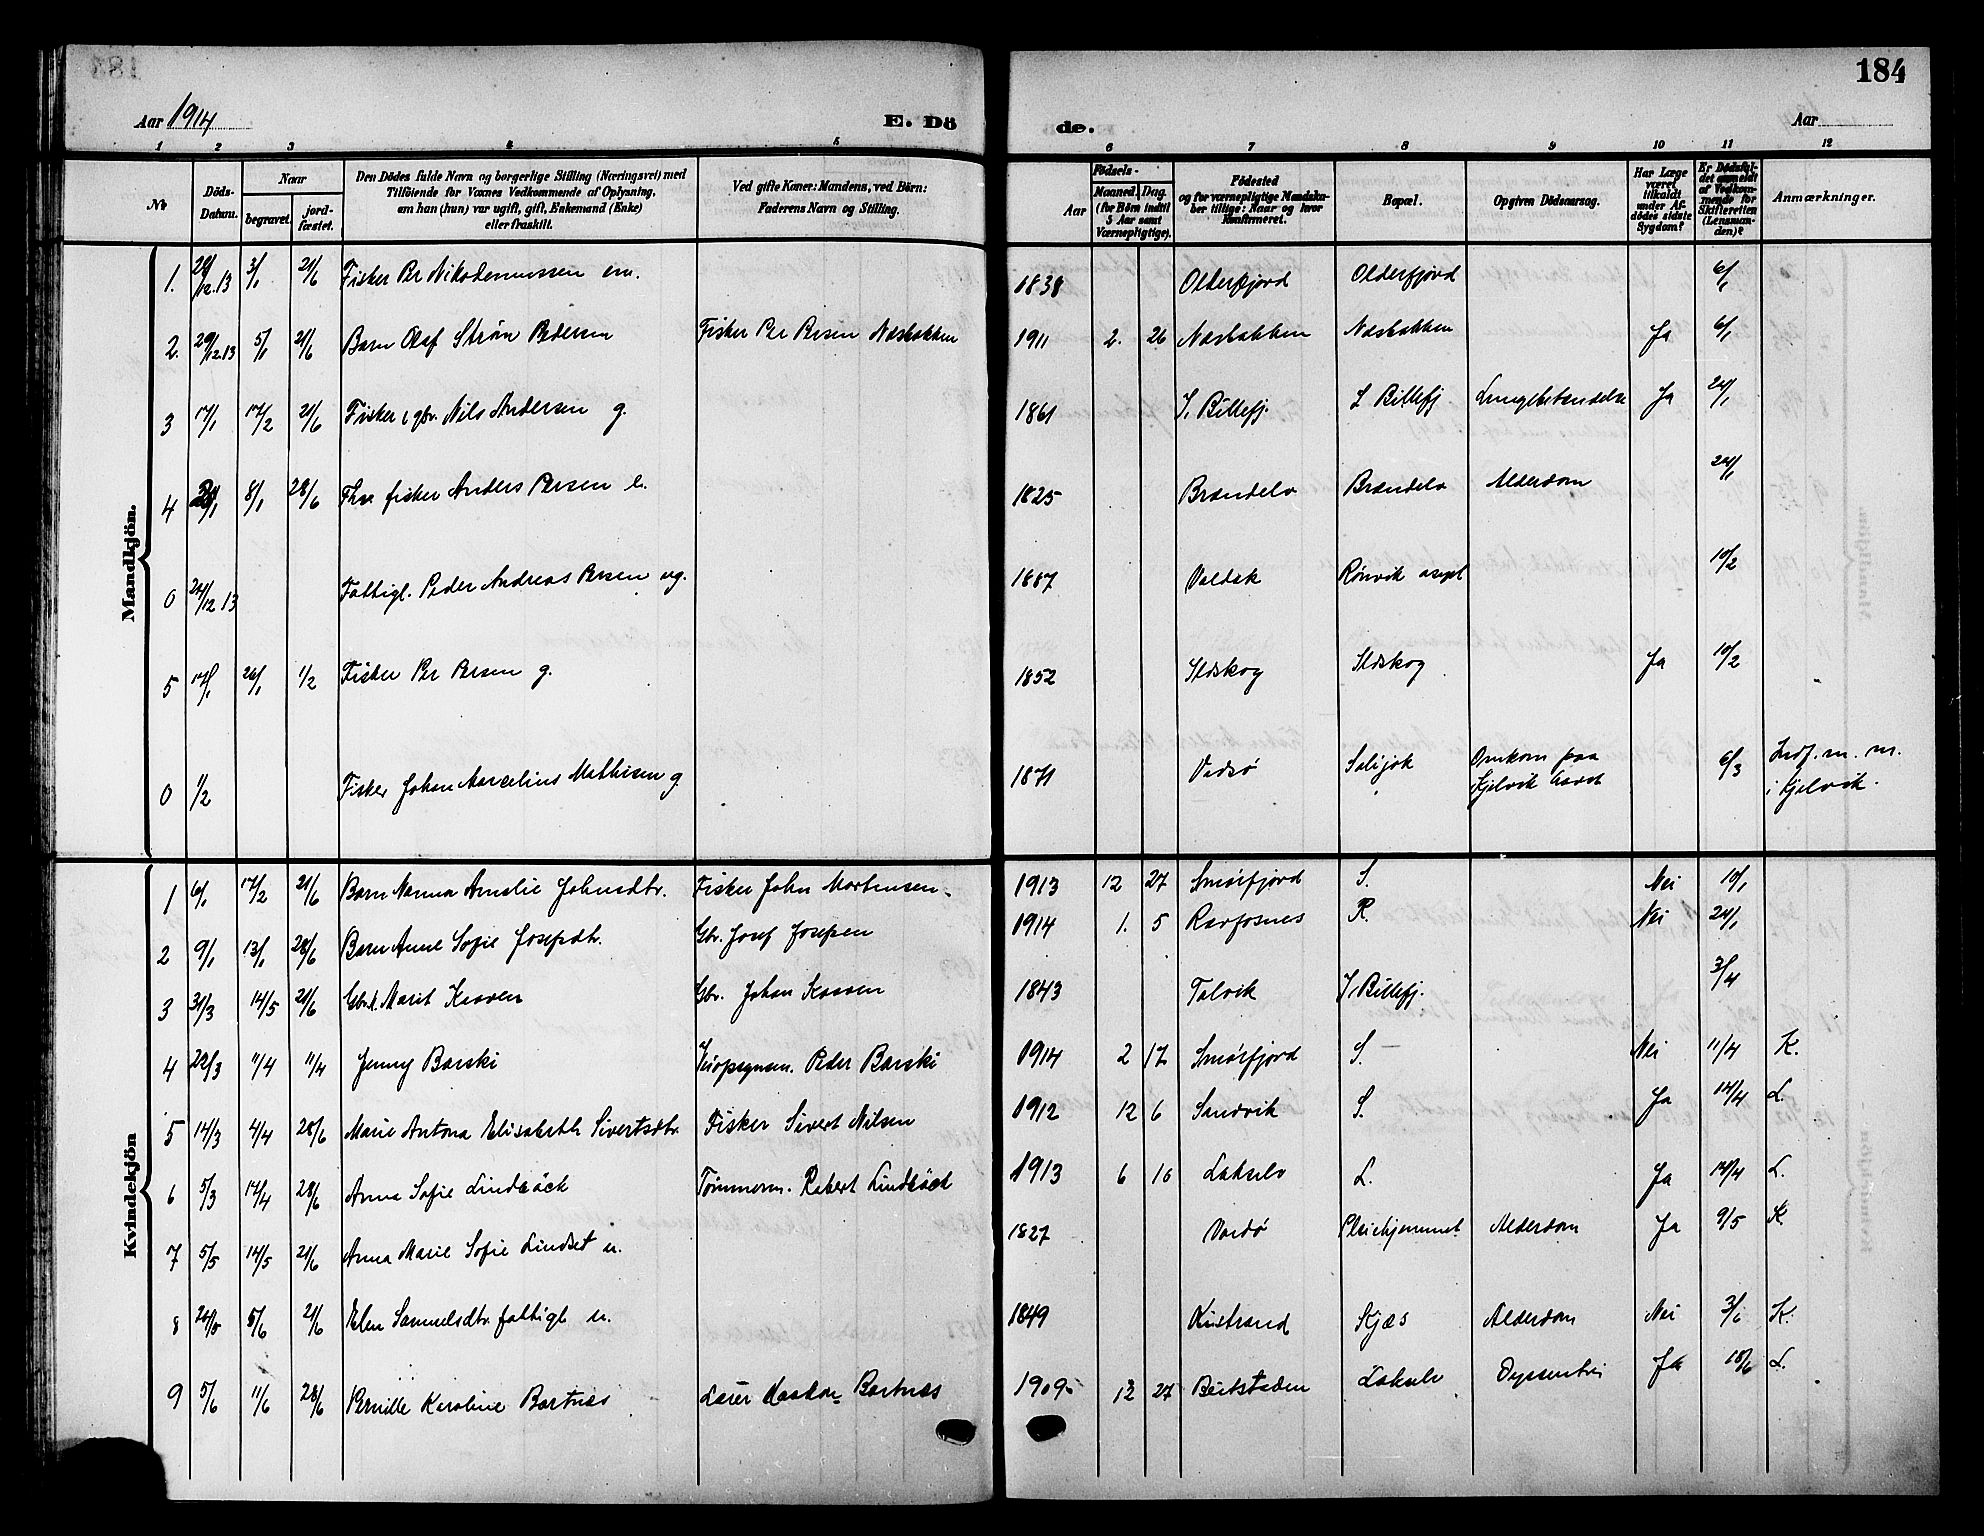 184
Aar 1914
E. Dö
de.
Aar
1 2 3 4 5 6 7 8 9 10 11 12
№
Döds-Datum.
Naar
begravet.
jord-fæstet.
Den Dödes fulde Navn og borgerlige Stilling (Næringsvei) med
Tilföiende for Voxnes Vedkommende af Oplysning,
om han (hun) var ugift, gift, Enkemand (Enke)
eller fraskilt.
Ved gifte Koner: Mandens, ved Börn:
Faderens Navn og Stilling.
Födsels-
Aar
Maaned. Dag.
(for Börn indtil 3 Aar samt Værnepligtige).
Födested
og for værnepligtige Mandska-
ber tillige: Naar og hvor
Konfirmeret.
Bopæl.
Opgiven Dödsaarsag.
Har Læge været tilkaldt under Af-dödes sidste Sygdom?
Er Dödsfal-det anmeldt af Vedkom-mende for Skifteretten (Lensman-den)?
Anmærkninger.
Mandkjön.
1. 12.13 3/1 21/6 Fisker Per Nikodemussen em. 1838 Olderfjord Olderfjord 6/1
2. 29/12.13 5/1 21/6 Barn Olaf Strøm Pedersen Fisker Per Persen Næsbakken 1911 2. 26 Næsbakken Næsbakken Ja 6/1
3 17/1 17/2 21/6 Fisker gbr. Nils Andersen g. 1861 Billefj. Billefj Lungebetændelse Ja 24/1
4 8/1 28/6 fisker Anders Persen e. 1825 Brændelv Brændelv Alderdom 24/1
0 24/12 13 Fattigl. Peder Andreas Persen ug. Valdak Rønvik asyl 10/2
5 17/1 26/1 1/2 Fisker Per Persen g. 1852 Ildskog Ildskog Ja 10/2
0 1/2 Fisker Johan Marcelius Mathisen g. 1871 Vadsø Omkom paa 6/3 Indf. m. m.
Kjelvik havet i Kjelvik.
Kvindekjön
1 6/1 17/2 21/6 Barn Nanna Amalie Johnsdtr. Fisker John Mortensen 1913 12 27 Smørfjord S. Nei 10/1
2 9/1 13/1 28/6 Barn Anne Sofie Josepsdtr. Gbr. Josef Josefsen 1914 1. 5 R. Nei 24/1
3 31/3 14/5 21/6 Marit Kaaven Gbr. Johan Kaaven 1843 Talvik Billefj. 3/4
4 22/3 11/4 11/4 Jenny Barski Peder Barski 1914 2 17 Smørfjord S. Nei 11/4 K.
5 14/3 4/4 28/6 Marie Antona Elisabeth Sivertsdtr. Fisker Sivert Nilsen 1912 12 6 Sandvik S. Ja 14/4 L.
6 5/3 14/4 28/6 Anna Sofie Lindbäck Tømmerm. Robert Lindbäck 1913 6 16 Lakselv L. Ja 14/4 L.
7 5/5 14/5 21/6 Anna Marie Sofie Lindset u. 1827 Vardø Pleiehjemmet Alderdom Ja 9/5 K
8 5/6 21/6 Elen Samuelsdtr. fattigl. u. 1849 Kistrand Skjæs Alderdom Nei K.
9 5/6 11/6 28/6 Pernille Karoline Bartnæs Lærer Haakon Bartnæs 1909 12 27 Beitstaden Lakselv Dyssenteri Ja 18/6 L.